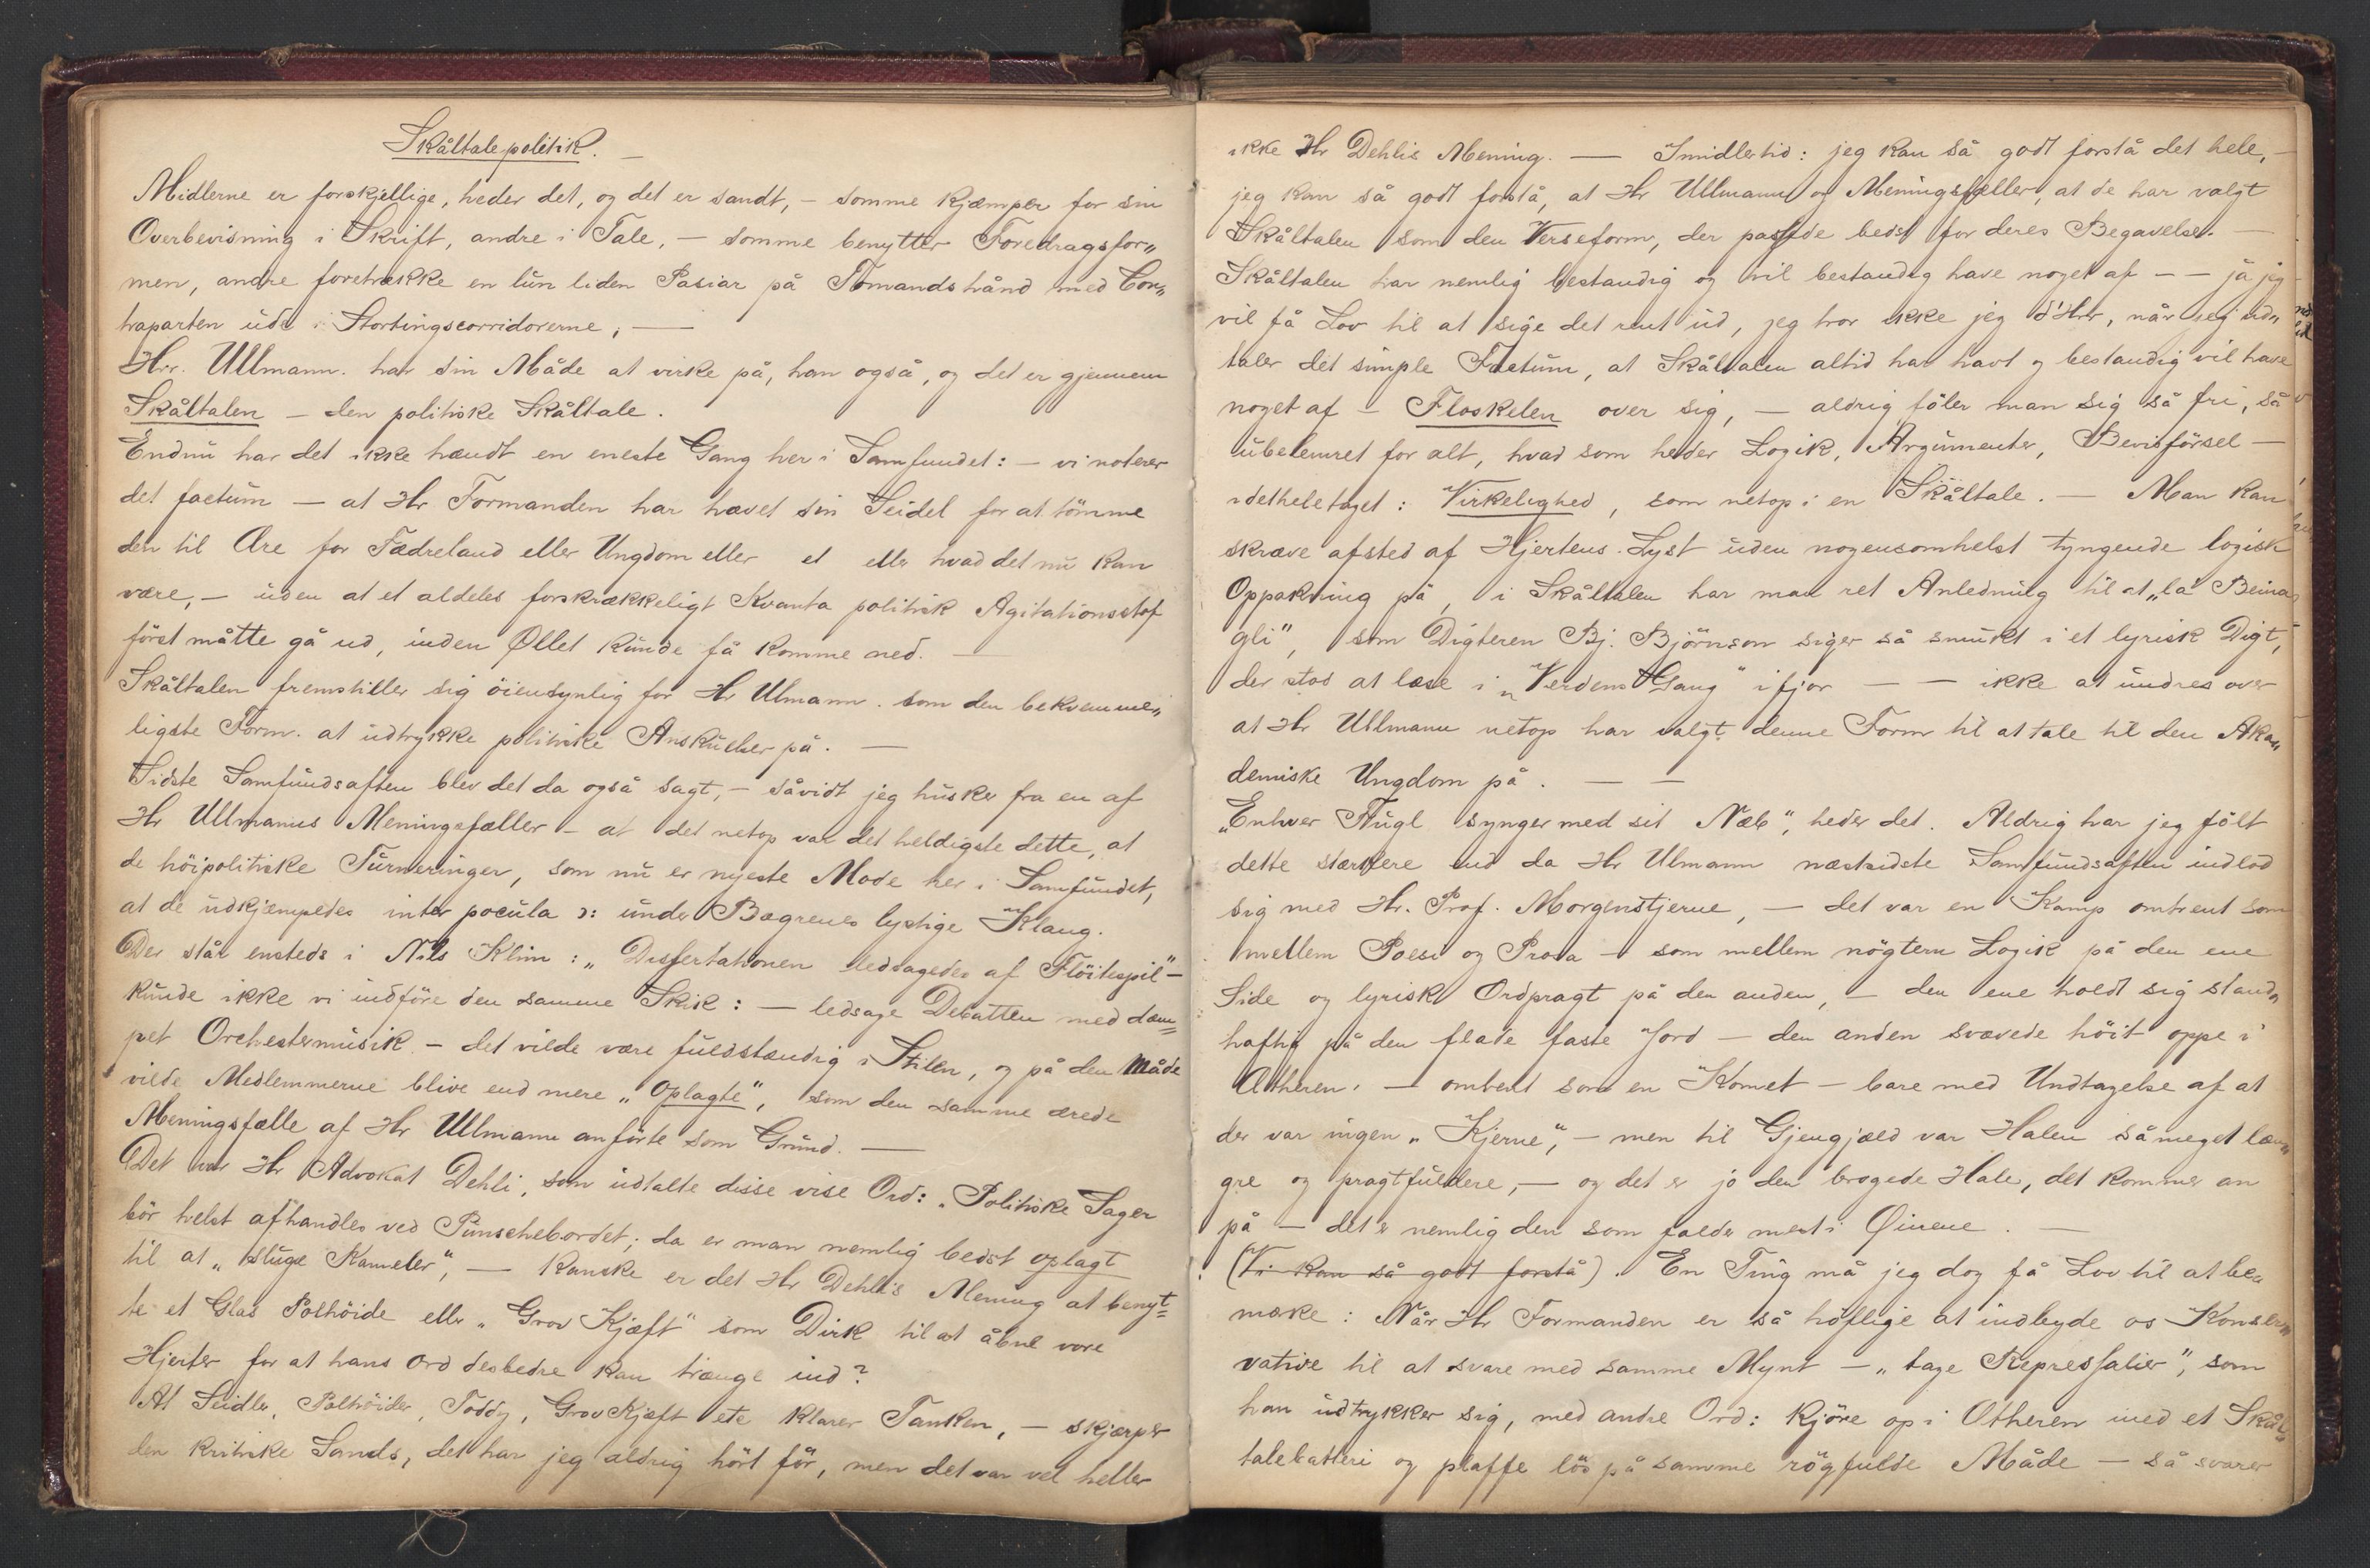 Skåltalepolitik. —
Midlerne er forskjellige, heder det, og det er sandt, – somme kjæmper for sin
Overbevisning i Skrift, andre i Tale, – somme benytter Foredragsfor„
men, andre foretrække en lun liden Pasiar på Tomandshånd med Con„
traparten ude i Stortingscorridorerne, —
Hr. Ullmann. har sin Måde at virke på, han også, og det er gjennem
Skåltalen – den politiske Skåltale.
Endnu har det ikke hændt en eneste Gang her i Samfundet: – vi noterer
det factum – at Hr Formanden har hævet sin Seidel for at tömme
den til Ære for Fædreland eller Ungdom eller et eller hvad det nu kan
være, – uden at et aldeles forskrækkeligt Kvanta politisk Agitationsstof
först måtte gå ud, inden Øllet kunde få komme ned. —
Skåltalen fremstiller sig öiensynlig for Hr Ulmann. som den bekvemme„
ligste Form. at udtrykke politiske Anskuelser på. —
Sidste Samfundsaften blev det da også sagt, – såvidt jeg husker fra en af
Hr Ullmanns Meningsfæller – at det netop var det heldigste dette, at
de höipolitiske Turneringer, som nu er nyeste Mode her i Samfundet,
at de udkjæmpedes inter pocula ɔ: under Bægrenes lystige Klang.
Der står ensteds i Nils Klim: „Dissertationen ledsagedes af Flöitespil" –
kunde ikke vi indföre den samme Skik: – ledsage Debatten med dæm=
pet Orchestermusik – det vilde være fuldstændig i Stilen, og på den Måde
vilde Medlemmerne blive end mere „oplagte", som den samme ærede
Meningsfælle af Hr Ullmann anförte som Grund. —
Det var Hr Advokat Dehli, som udtalte disse vise Ord: „Politiske Sager
bör helst afhandles ved Punschebordet; da er man nemlig bedst oplagt
til at „sluge Kameler", – Kanske er det Hr Dehlis Mening at benyt=
te et Glas Polhöide eller „Grov Kjæft" som Dirk til at åbne vore
Hjerter for at hans Ord desbedre kan trænge ind?
At Seidler, Polhöider, Toddy, Grov Kjæft etc klarer Tanken, – skjærper
den kritiske Sands, det har jeg aldrig hört för, men det var vel heller
ikke Hr Dehlis Mening. — Imidlertid: jeg kan så godt forstå det hele, –
jeg kan så godt forstå, at Hr Ullmann og Meningsfæller, at de har valgt
Skåltalen som den Verseform, der passede bedst for deres Begavelse. —
Skåltalen har nemlig bestandig og vil bestandig have noget af – – ja jeg
vil få Lov til at sige det rent ud, jeg tror ikke jeg d'Hrr, når jeg ud„
taler det simple Factum, at Skåltalen altid har havt og bestandig vil have
noget af – Floskelen over sig, – aldrig föler man sig så fri, så
ubelemret for alt, hvad som heder Logik, Argumenter, Bevisförsel –
idetheletaget: Virkelighed, som netop i en Skåltale. – Man kan
skræve afsted af Hjertens Lyst uden nogensomhelst tyngende logisk
Oppakning på, i Skåltalen har man ret Anledning til at „la Beina
gli", som Digteren Bj. Björnson siger så smukt i et lyrisk Digt,
der stod at læse i „Verdens Gang" ifjor – – ikke at undres over
at Hr Ullmann netop har valgt denne Form til at tale til den Aka„
demiske Ungdom på. — —
„Enhver Fugl synger med sit Næb", heder det. Aldrig har jeg fölt
dette stærkere end da Hr Ulmann næstsidste Samfundsaften indlod
sig med Hr. Prof. Morgenstjerne, – det var en Kamp omtrent som
mellem Poesi og Prosa – som mellem nögtern Logik på den ene
Side og lyrisk Ordpragt på den anden, – den ene holdt sig stand„
haftig på den flade faste Jord – den anden svævede höit oppe i
Ætheren. – omtrent som en Komet – bare med Undtagelse af at
der var ingen „Kjerne", – men til Gjengjæld var Halen såmeget læn„
gre og pragtfuldere, – og det er jo den brogede Hale, det kommer an
på – det er nemlig den som falder mest i Öinene. —
(Vi kan så godt forstå). En Ting må jeg dog få Lov til at be„
mærke: Når Hr Formanden er så höflige at indbyde os Konser„
vative til at svare med samme Mynt – „tage Repressalier", som
han udtrykker sig, med andre Ord: kjöre op i Ætheren med et Skål„
talebatteri og plaffe lös på samme rögfulde Måde – så svarer